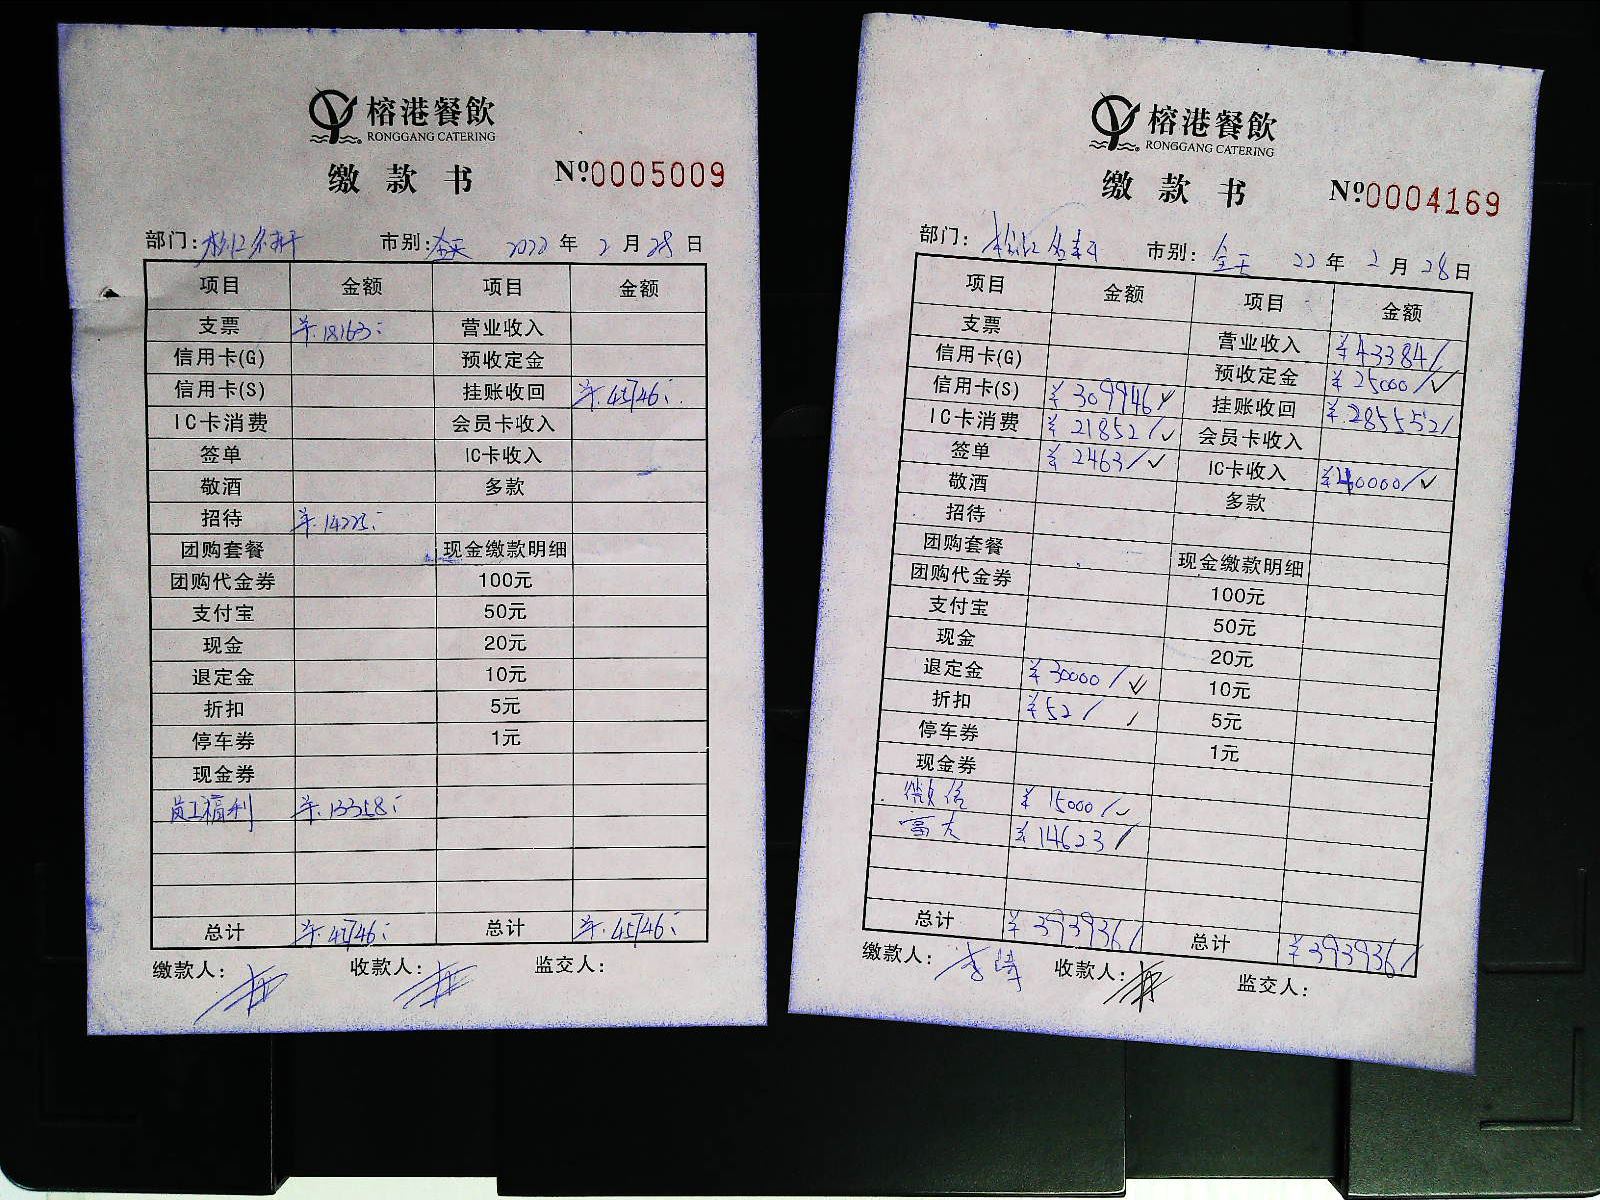 榕港餐飲
RONGGANG CATERING
缴款书 Nº0005009
部门: 松江名轩 市别: 全天 2022 年 2 月 28 日
项目 金额 项目 金额
支票 ¥18163 营业收入
信用卡(G) 预收定金
信用卡(S) 挂账收回 ¥45746
IC卡消费 会员卡收入
签单 IC卡收入
敬酒 多款
招待 ¥14225
团购套餐 现金缴款明细
团购代金券 100元
支付宝 50元
现金 20元
退定金 10元
折扣 5元
停车券 1元
现金券
员工福利 ¥13358
总计 ¥45746 总计 ¥45746
缴款人: 收款人: 监交人:
榕港餐飲
RONGGANG CATERING
缴款书 Nº0004169
部门: 松江名轩 市别: 全天 22 年 2 月 28 日
项目 金额 项目 金额
支票 营业收入 ¥43384/
信用卡(G) 预收定金 ¥25000/
信用卡(S) ¥309946/ 挂账收回 ¥285552/
IC卡消费 ¥21852/ 会员卡收入
签单 ¥2463/ IC卡收入 ¥40000/
敬酒 多款
招待
团购套餐 现金缴款明细
团购代金券 100元
支付宝 50元
现金 20元
退定金 ¥30000/ 10元
折扣 ¥52/ 5元
停车券 1元
现金券
微信 ¥15000/
¥14623/
总计 ¥393936/ 总计 ¥393936/
缴款人: 收款人: 监交人: